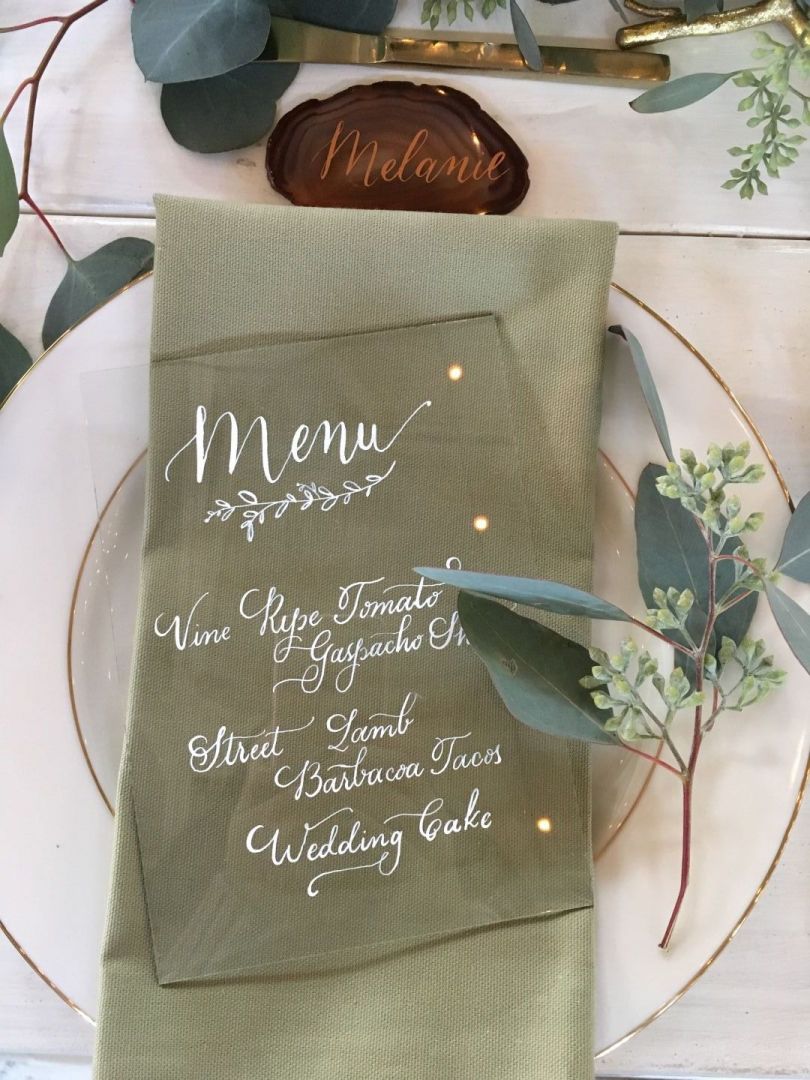 Melanie
Menu
Vine Ripe Tomato
Gaspacho
Street Lamb
Barbacoa Tacos
Wedding Cake